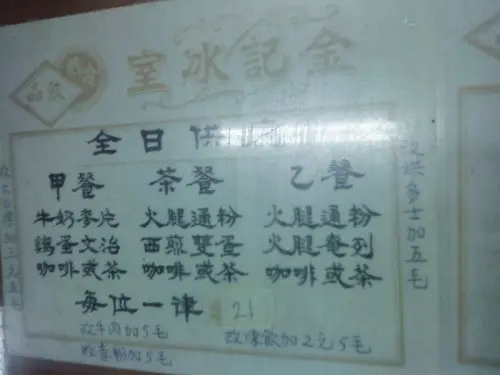 金記冰室
飲品
全日供應
甲餐 茶餐 乙餐
牛奶麥片 火腿通粉 火腿通粉
鷄蛋文治 西煎雙蛋 火腿奄列
咖啡或茶 咖啡或茶 咖啡或茶
每位一律 21
改牛肉加5毛 改凍飲加2元5毛
改意粉加5毛
改烘多士加五毛
加三元五毛